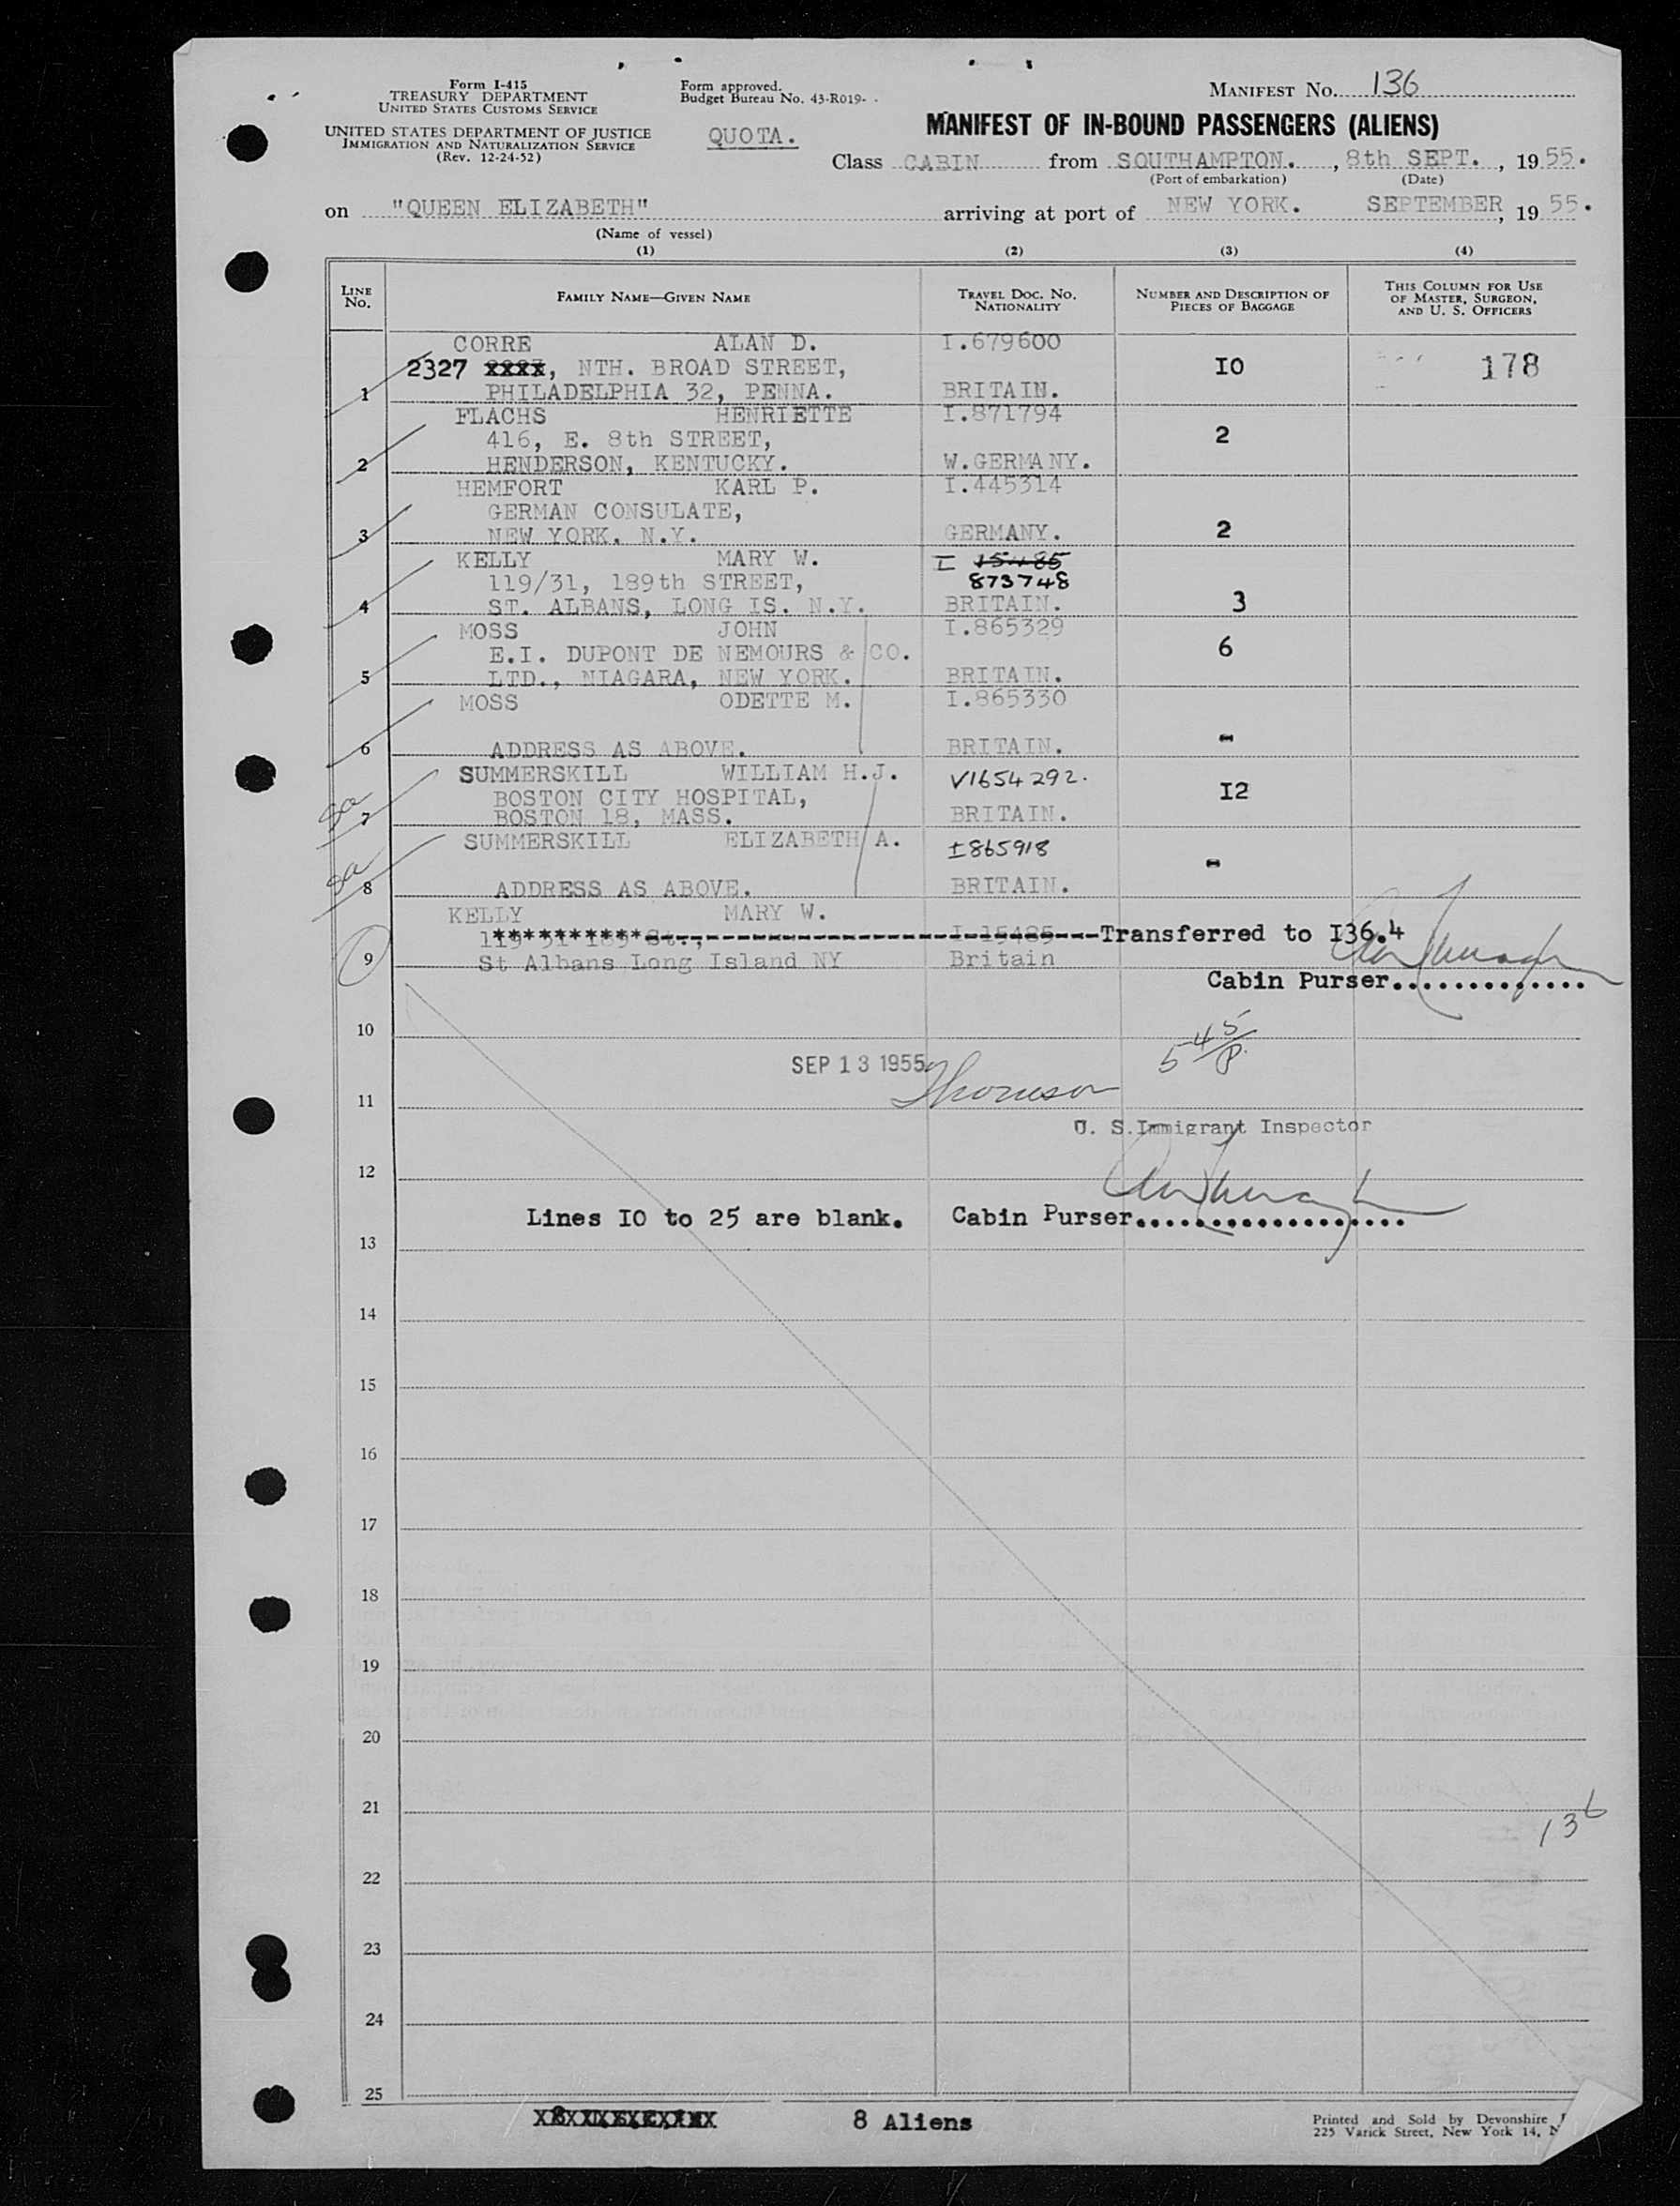 Form I-415
TREASURY DEPARTMENT
UNITED STATES CUSTOMS SERVICE
UNITED STATES DEPARTMENT OF JUSTICE
IMMIGRATION AND NATURALIZATION SERVICE
(Rev. 12-24-52)
Form approved.
Budget Bureau No. 43-R019-
QUOTA.
MANIFEST NO. 136
MANIFEST OF IN-BOUND PASSENGERS (ALIENS)
Class CABIN from SOUTHAMPTON. , 8th SEPT. , 19 55.
(Port of embarkation) (Date)
on "QUEEN ELIZABETH" arriving at port of NEW YORK. SEPTEMBER, 19 55.
(Name of vessel)
(1) (2) (3) (4)
LINE NO. FAMILY NAME—GIVEN NAME TRAVEL DOC. NO. NATIONALITY NUMBER AND DESCRIPTION OF PIECES OF BAGGAGE THIS COLUMN FOR USE OF MASTER, SURGEON, AND U. S. OFFICERS
CORRE ALAN D. I.679600
2327 xxxx, NTH. BROAD STREET, IO 178
1 PHILADELPHIA 32, PENNA. BRITAIN.
FLACHS HENRIETTE I.871794
416, E. 8th STREET, 2
2 HENDERSON, KENTUCKY. W.GERMANY.
HEMFORT KARL P. I.445314
GERMAN CONSULATE,
3 NEW YORK. N.Y. GERMANY. 2
KELLY MARY W. I 15485
119/31, 189th STREET, 873748
4 ST. ALBANS, LONG IS. N.Y. BRITAIN. 3
MOSS JOHN I.865329
E.I. DUPONT DE NEMOURS & CO. 6
5 LTD., NIAGARA, NEW YORK. BRITAIN.
MOSS ODETTE M. I.865330
6 ADDRESS AS ABOVE. BRITAIN. -
SUMMERSKILL WILLIAM H.J. V1654292.
BOSTON CITY HOSPITAL, I2
7 BOSTON 18, MASS. BRITAIN.
SUMMERSKILL ELIZABETH A. I865918
-
8 ADDRESS AS ABOVE. BRITAIN.
KELLY MARY W.
119 31 189 St., I-15485 Transferred to I36.4
9 St Albans Long Island NY Britain
Cabin Purser..............
10
SEP 13 1955 Thomson
11
U. S. Immigrant Inspector
12
Lines IO to 25 are blank. Cabin Purser....................
13
14
15
16
17
18
19
20
21
136
22
23
24
25
8 Aliens
Printed and Sold by Devonshire
225 Varick Street, New York 14, N